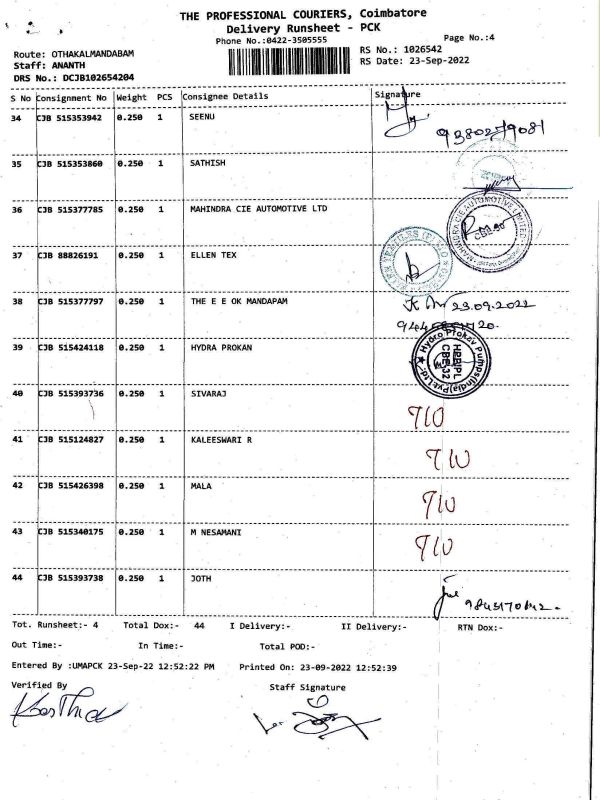 THE PROFESSIONAL COURIERS, Coimbatore
Delivery Runsheet - PCK
Phone No.:0422-3505555
Page No.:4
Route: OTHAKALMANDABAM
RS No.: 1026542
Staff: ANANTH
RS Date: 23-Sep-2022
DRS No.: DCJB102654204
S No Consignment No Weight PCS Consignee Details Signature
34 CJB 515353942 0.250 1 SEENU
9380279081
35 CJB 515353860 0.250 1 SATHISH
36 CJB 515377785 0.250 1 MAHINDRA CIE AUTOMOTIVE LTD
MAHINDRA CIE AUTOMOTIVE LIMITED
37 CJB 88826191 0.250 1 ELLEN TEX
38 CJB 515377797 0.250 1 THE E E OK MANDAPAM
23.09.2022
39 CJB 515424118 0.250 1 HYDRA PROKAN
Hydro Prokav Pumps(India)Pvt.Ltd
HPPIPL
CBE-32
40 CJB 515393736 0.250 1 SIVARAJ T10
41 CJB 515124827 0.250 1 KALEESWARI R T10
42 CJB 515426398 0.250 1 MALA T10
43 CJB 515340175 0.250 1 M NESAMANI T10
44 CJB 515393738 0.250 1 JOTH
Tot. Runsheet:- 4 Total Dox:- 44 I Delivery:- II Delivery:- RTN Dox:-
Out Time:- In Time:- Total POD:-
Entered By :UMAPCK 23-Sep-22 12:52:22 PM Printed On: 23-09-2022 12:52:39
Verified By Staff Signature